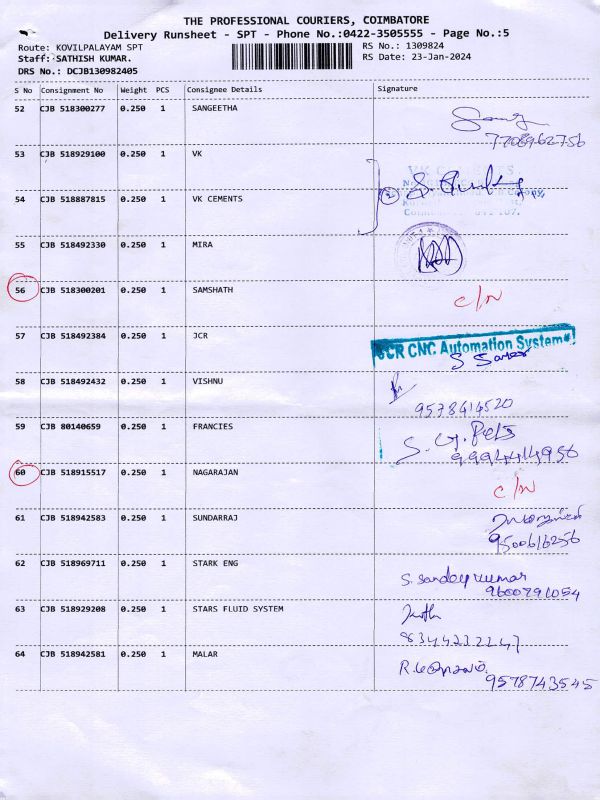 THE PROFESSIONAL COURIERS, COIMBATORE
Delivery Runsheet - SPT - Phone No.:0422-3505555 - Page No.:5
Route: KOVILPALAYAM SPT
Staff: SATHISH KUMAR.
DRS No.: DCJB130982405
RS No.: 1309824
RS Date: 23-Jan-2024
S No Consignment No Weight PCS Consignee Details Signature
52 CJB 518300277 0.250 1 SANGEETHA
7708962756
53 CJB 518929100 0.250 1 VK
54 CJB 518887815 0.250 1 VK CEMENTS
55 CJB 518492330 0.250 1 MIRA
56 CJB 518300201 0.250 1 SAMSHATH c/n
57 CJB 518492384 0.250 1 JCR
JCR CNC Automation Systems
58 CJB 518492432 0.250 1 VISHNU
9578614520
59 CJB 80140659 0.250 1 FRANCIES
60 CJB 518915517 0.250 1 NAGARAJAN c/n
61 CJB 518942583 0.250 1 SUNDARRAJ
9500616256
62 CJB 518969711 0.250 1 STARK ENG
S. Sandeep kumar
9600791054
63 CJB 518929208 0.250 1 STARS FLUID SYSTEM
8344232247
64 CJB 518942581 0.250 1 MALAR
9578743545